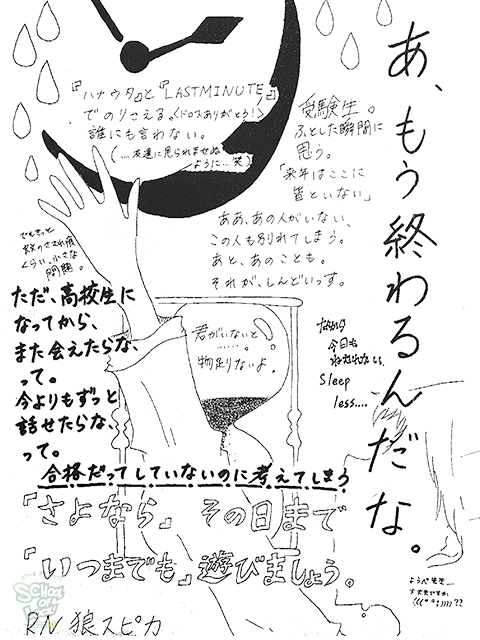 あ、もう終わるんだな。
『ハナウタ』と『LASTMINUTE』
でのりきえる。〈ドロスありがとう!〉
誰にも言わない。
(…友達に見られませぬ
ように…笑)
受験生。
ふとした瞬間に
思う。
「来年はここに
皆といない」
ああ、あの人がいない、
この人も別れてしまう。
あと、あのことも。
それが、しんどいっす。
でもきっと
蚊のさされ痕
くらい、小さな
問題。
ただ、高校生に
なってから、
また会えたらな、
って。
今よりもずっと
話せたらな、
って。
君がいないと
……。
物足りないよ。
だから
今日も
ねむれないし、
Sleep
less....
合格だってしていないのに考えてしまう
「さよなら」その日まで
「いつまでも」遊びましょう。
ようぺ先生…
大丈夫ですか
RN 狼スピカ